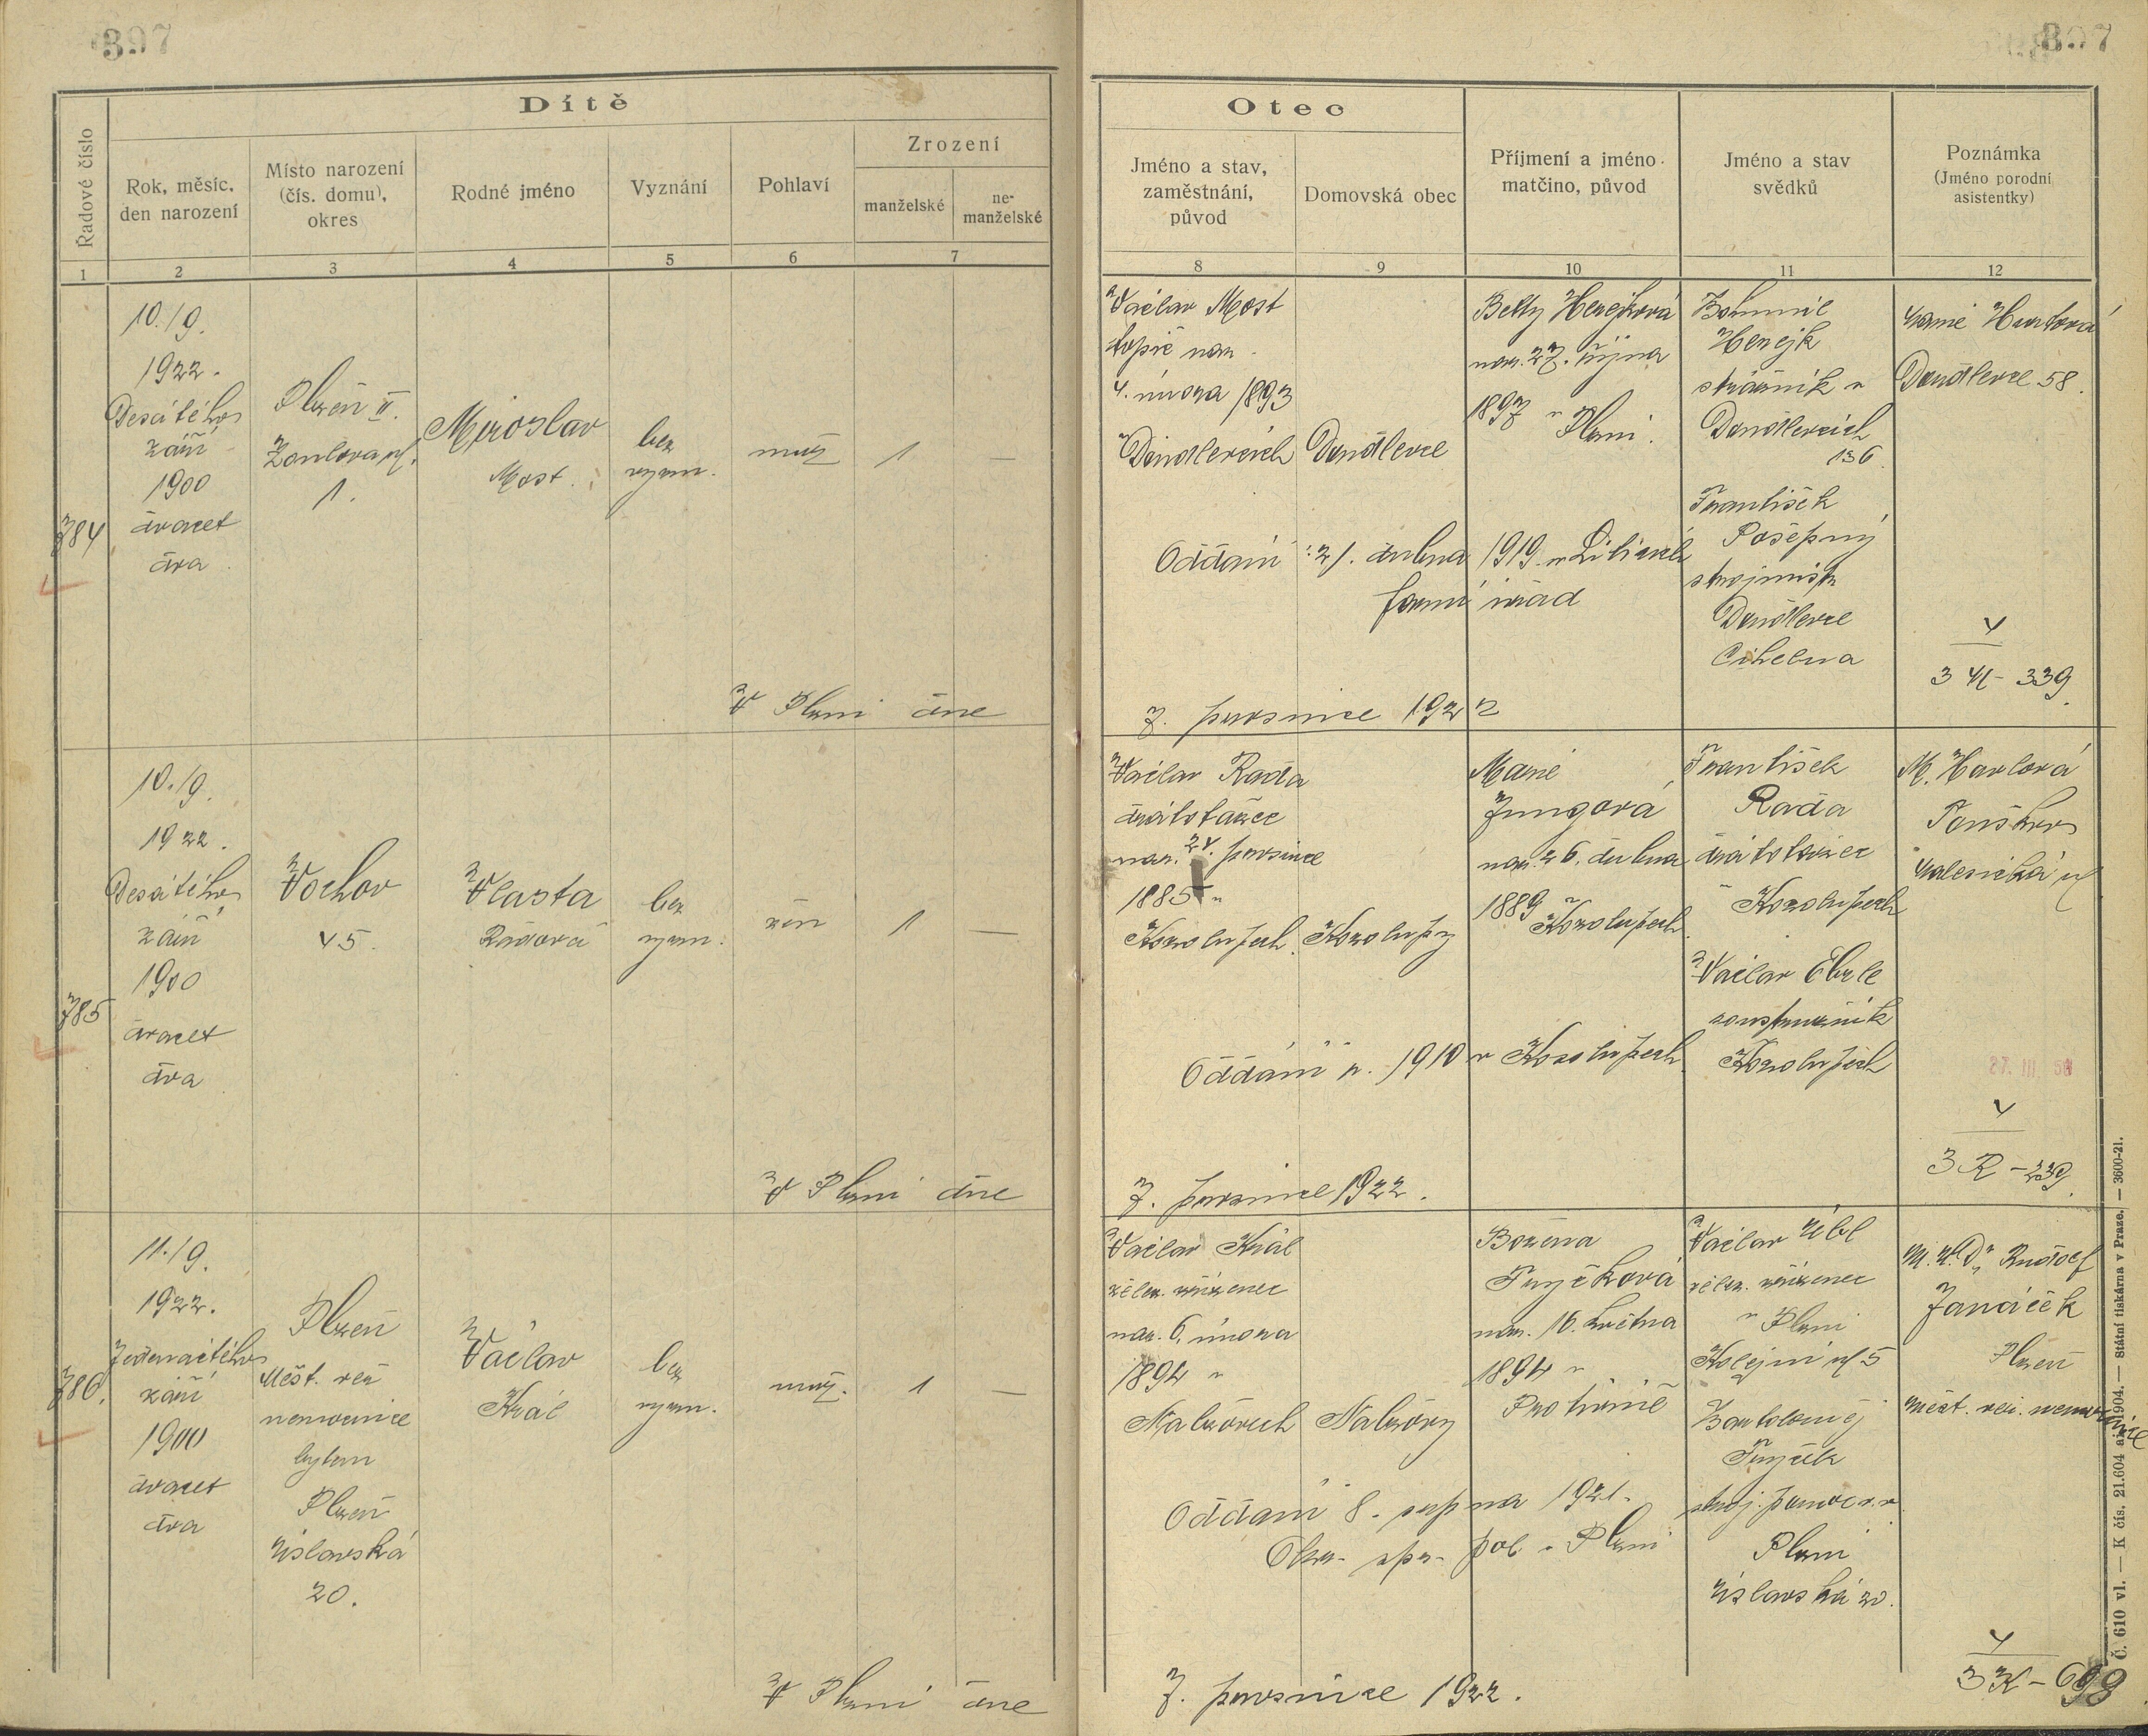 397
397
Dítě
Řadové číslo
Rok, měsíc,
den narození
Místo narození
(čís. domu),
okres
Rodné jméno
Vyznání
Pohlaví
Zrození
manželské
ne-
manželské
1
2
3
4
5
6
7
Otec
Jméno a stav,
zaměstnání,
původ
Domovská obec
Příjmení a jméno
matčino, původ
Jméno a stav
svědků
Poznámka
(Jméno porodní
asistentky)
8
9
10
11
12
784
10./9.
1922.
Desátého
září
1900
dvacet
dva
Plzeň II.
1.
Miroslav
Most.
bez
vyzn.
muž
1
—
Václav Most
topič nar.
4. února 1893
Doudlevcích
Doudlevce
nar. 27. října
1897 v Plzni.
Bohumil
strážník v
Doudlevcích
136.
František
Pošepný
Doudlevce
Cihelna
Marie
Doudlevce 58.
Oddáni 21. dubna 1919 v Liticích
farní úřad
V Plzni dne
7. prosince 1922
785
10./9.
1922.
Desátého
září
1900
dvacet
dva
Vochov
45.
Vlasta
Radová
bez
vyzn.
žen
1
—
Václav Rada
nar. 24. prosince
1885 v
Kozolupech.
Kozolupy
Marie
Jungová
nar. 26. dubna
1889 v
Kozolupech.
František
Rada
v Kozolupech
Václav Eberle
Kozolupech
M. Havlová
Touškov
Oddáni r. 1910 v Kozolupech
3 R - 239.
V Plzni dne
7. prosince 1922.
786.
11./9.
1922.
Jedenáctého
září
1900
dvacet
dva
Plzeň
Měst. veř
nemocnice
bytem
Plzeň
Úslavská
20.
Václav
Král
bez
vyzn.
muž.
1
—
Václav Král
želez. zřízenec
nar. 6. února
1894 v
Nalžovech
Nalžovy
Božena
nar. 16. května
1894 v
Protivíně
Václav Úbl
želez. zřízenec
v Plzni
Kolejní ul 5
Bartoloměj
stroj. pomoc. v
Plzni
Úslavská 20.
M. U. Dr. Rudolf
Janáček
Plzeň
měst. veř. nemocnice
Oddáni 8. srpna 1921.
Okr. spr. pol. v Plzni
3 K - 699
V Plzni dne
7. prosince 1922.
Č. 610 vl. — K čís. 21.604 ai 1904. — Státní tiskárna v Praze. — 3600-21.